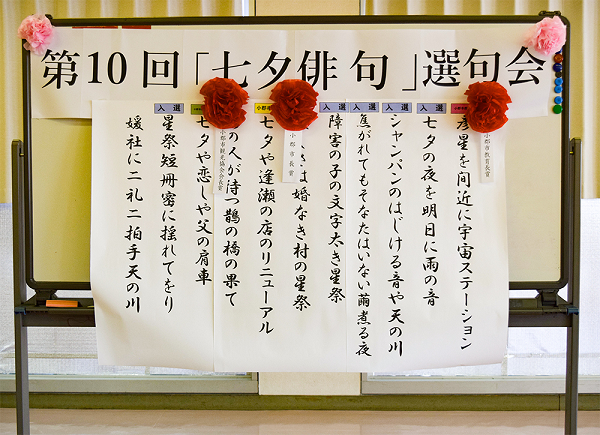 第10回「七夕俳句」選句会
彦星を間近に宇宙ステーション
小郡市教育長賞
入選
七夕の夜を明日に雨の音
入選
シャンパンのはじける音や天の川
入選
焦がれてもそなたはいない繭煮る夜
入選
障害の子の文字太き星祭
小郡市長賞
は婚なき村の星祭
七夕や逢瀬の店のリニューアル
の人が待つ鵲の橋の果て
小郡市観光協会会長賞
七夕や恋しや父の肩車
入選
星祭短冊密に揺れてをり
媛社に二礼二拍手天の川